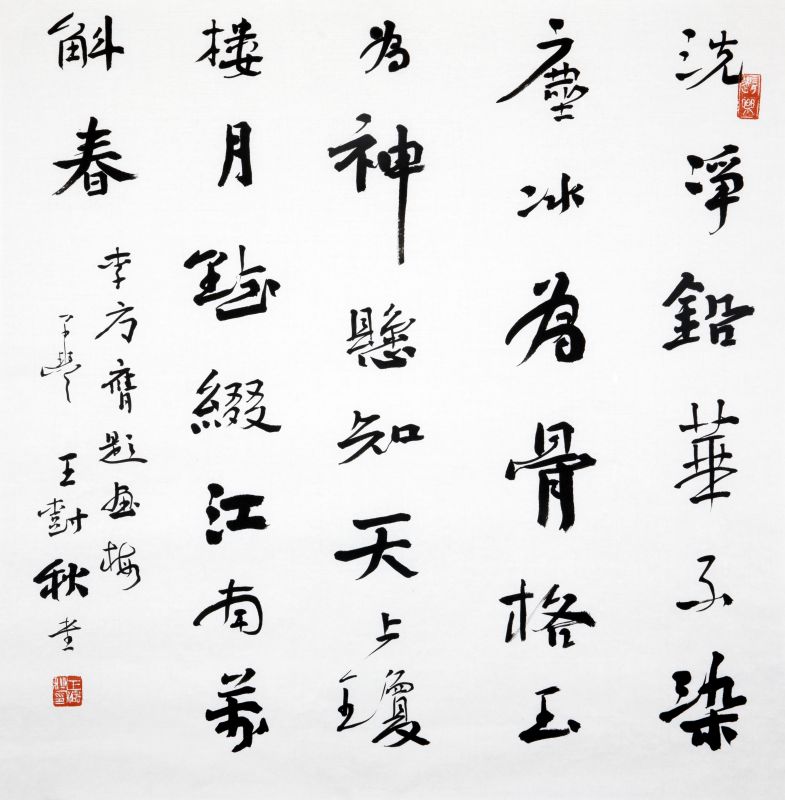 洗淨鉛華不染
塵冰為骨格玉
為神懸知天上瓊
樓月點綴江南萬
斛春
李方膺題畫梅
王樹秋書